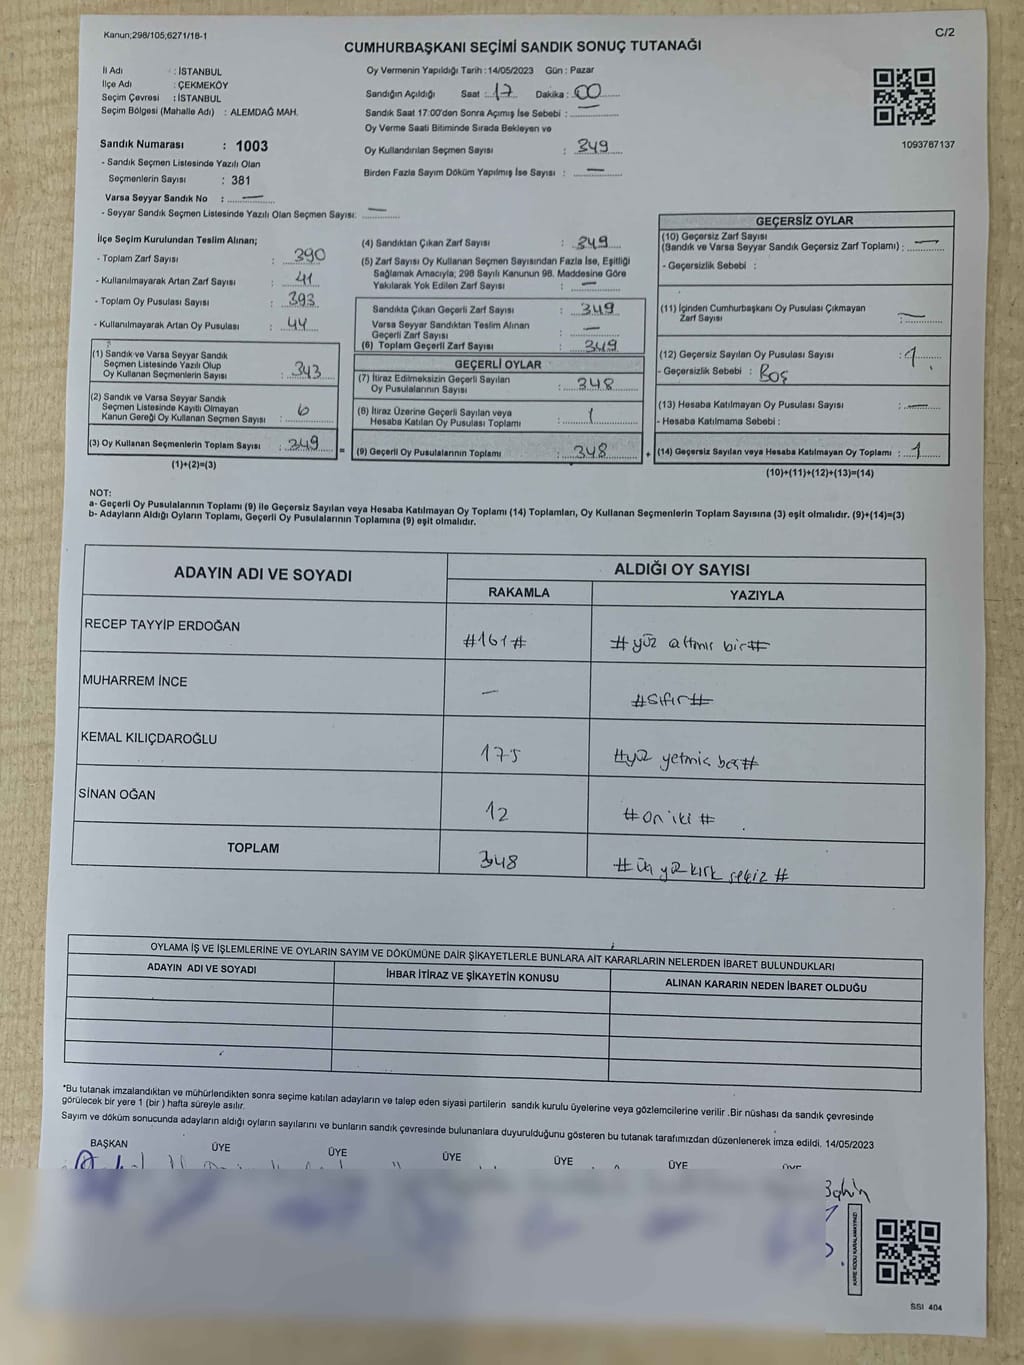 Kanun;298/105,6271/16-1
C/2
CUMHURBAŞKANI SEÇİMİ SANDIK SONUÇ TUTANAĞI
İl Adı : İSTANBUL
İlçe Adı : ÇEKMEKÖY
Seçim Çevresi : İSTANBUL
Seçim Bölgesi (Mahalle Adı) : ALEMDAĞ MAH.
Oy Vermenin Yapıldığı Tarih : 14/05/2023 Gün : Pazar
Sandığın Açıldığı Saat : 17 Dakika : 00
Sandık Saat 17:00'den Sonra Açımış İse Sebebi : —
Oy Verme Saati Bitiminde Sırada Bekleyen ve
Oy Kullandırılan Seçmen Sayısı : 349
Birden Fazla Sayım Döküm Yapılmış İse Sayısı : —
1093787137
Sandık Numarası : 1003
- Sandık Seçmen Listesinde Yazılı Olan
Seçmenlerin Sayısı : 381
Varsa Seyyar Sandık No : —
- Seyyar Sandık Seçmen Listesinde Yazılı Olan Seçmen Sayısı: —
İlçe Seçim Kurulundan Teslim Alınan;
- Toplam Zarf Sayısı : 390
- Kullanılmayarak Artan Zarf Sayısı : 41
- Toplam Oy Pusulası Sayısı : 393
- Kullanılmayarak Artan Oy Pusulası : 44
(1) Sandık ve Varsa Seyyar Sandık
Seçmen Listesinde Yazılı Olup
Oy Kullanan Seçmenlerin Sayısı : 343
(2) Sandık ve Varsa Seyyar Sandık
Seçmen Listesinde Kayıtlı Olmayan
Kanun Gereği Oy Kullanan Seçmen Sayısı : 6
(3) Oy Kullanan Seçmenlerin Toplam Sayısı : 349
(1)+(2)=(3)
(4) Sandıktan Çıkan Zarf Sayısı : 349
(5) Zarf Sayısı Oy Kullanan Seçmen Sayısından Fazla İse, Eşitliği
Sağlamak Amacıyla; 298 Sayılı Kanunun 98. Maddesine Göre
Yakılarak Yok Edilen Zarf Sayısı : —
Sandıkta Çıkan Geçerli Zarf Sayısı : 349
Varsa Seyyar Sandıktan Teslim Alınan
Geçerli Zarf Sayısı : —
(6) Toplam Geçerli Zarf Sayısı : 349
GEÇERLİ OYLAR
(7) İtiraz Edilmeksizin Geçerli Sayılan
Oy Pusulalarının Sayısı : 348
(8) İtiraz Üzerine Geçerli Sayılan veya
Hesaba Katılan Oy Pusulası Toplamı : 1
= (9) Geçerli Oy Pusulalarının Toplamı : 348
GEÇERSİZ OYLAR
(10) Geçersiz Zarf Sayısı
(Sandık ve Varsa Seyyar Sandık Geçersiz Zarf Toplamı) : —
- Geçersizlik Sebebi :
(11) İçinden Cumhurbaşkanı Oy Pusulası Çıkmayan
Zarf Sayısı : —
(12) Geçersiz Sayılan Oy Pusulası Sayısı : 1
- Geçersizlik Sebebi : Boş
(13) Hesaba Katılmayan Oy Pusulası Sayısı : —
- Hesaba Katılmama Sebebi :
+ (14) Geçersiz Sayılan veya Hesaba Katılmayan Oy Toplamı : 1
(10)+(11)+(12)+(13)=(14)
NOT:
a- Geçerli Oy Pusulalarının Toplamı (9) ile Geçersiz Sayılan veya Hesaba Katılmayan Oy Toplamı (14) Toplamları, Oy Kullanan Seçmenlerin Toplam Sayısına (3) eşit olmalıdır. (9)+(14)=(3)
b- Adayların Aldığı Oyların Toplamı, Geçerli Oy Pusulalarının Toplamına (9) eşit olmalıdır.
ADAYIN ADI VE SOYADI
ALDIĞI OY SAYISI
RAKAMLA YAZIYLA
RECEP TAYYİP ERDOĞAN #161# #yüz altmış bir#
MUHARREM İNCE — #sıfır#
KEMAL KILIÇDAROĞLU 175 #yüz yetmiş beş#
SİNAN OĞAN 12 #on iki #
TOPLAM 348 #üç yüz kırk sekiz #
OYLAMA İŞ VE İŞLEMLERİNE VE OYLARIN SAYIM VE DÖKÜMÜNE DAİR ŞİKAYETLERLE BUNLARA AİT KARARLARIN NELERDEN İBARET BULUNDUKLARI
ADAYIN ADI VE SOYADI İHBAR İTİRAZ VE ŞİKAYETİN KONUSU ALINAN KARARIN NEDEN İBARET OLDUĞU
*Bu tutanak imzalandıktan ve mühürlendikten sonra seçime katılan adayların ve talep eden siyasi partilerin sandık kurulu üyelerine veya gözlemcilerine verilir .Bir nüshası da sandık çevresinde
görülecek bir yere 1 (bir ) hafta süreyle asılır.
Sayım ve döküm sonucunda adayların aldığı oyların sayılarını ve bunların sandık çevresinde bulunanlara duyurulduğunu gösteren bu tutanak tarafımızdan düzenlenerek imza edildi. 14/05/2023
BAŞKAN ÜYE ÜYE ÜYE ÜYE ÜYE
KARE KODU KARALAMAYINIZ!
SSI 404